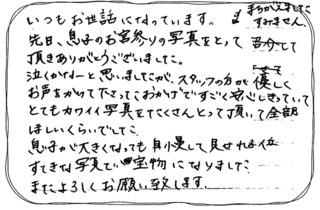 まちがえました
すみません。
いつもお世話になっています。
先日、息子のお宮参りの写真をとって
頂きありがとうございました。
泣くかなーと思いましたが、スタッフの方が優しく
お声をかけて下さって、おかげですごく安心しきっていて
とてもカワイイ写真をたくさんとって頂いて全部
ほしいくらいでした。
息子が大きくなっても自慢して見せれる位
すてきな写真で宝物になりました。
またよろしくお願い致します。